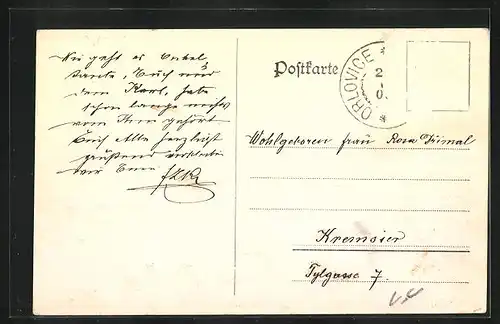 Wie geht es Onkel
Tante, Euch und
dem Karl, habe
schon lange nichts
von Ihm gehört
Euch Alle herzlichst
grüßend verbleiben
wir Eure
Postkarte
ORLOVICE
2
Wohlgeboren frau Rosa
Kremsier
Tylgasse 7.